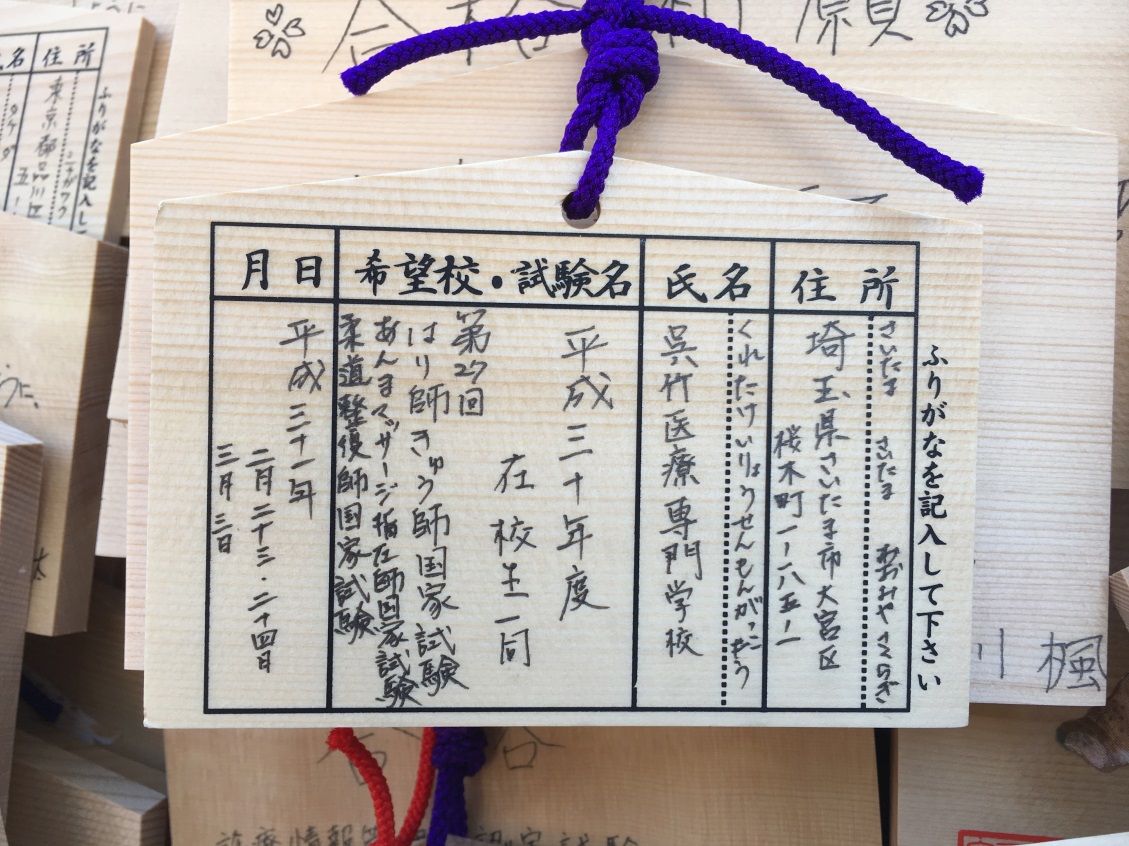 合格祈願
ふりがなを記入して下さい
住所
さいたま さいたま おおみや さくらぎ
埼玉県さいたま市大宮区
桜木町一ー八五ー一
氏名
くれたけいりょうせんもんがっこう
呉竹医療専門学校
希望校・試験名
平成三十年度
在校生一同
第27回
はり師きゅう師国家試験
あんまマッサージ指圧師国家試験
柔道整復師国家試験
月日
平成三十一年
二月二十三・二十四日
三月三日
ふりがなを記入し
住所
東京都品川区
名
楓
合格